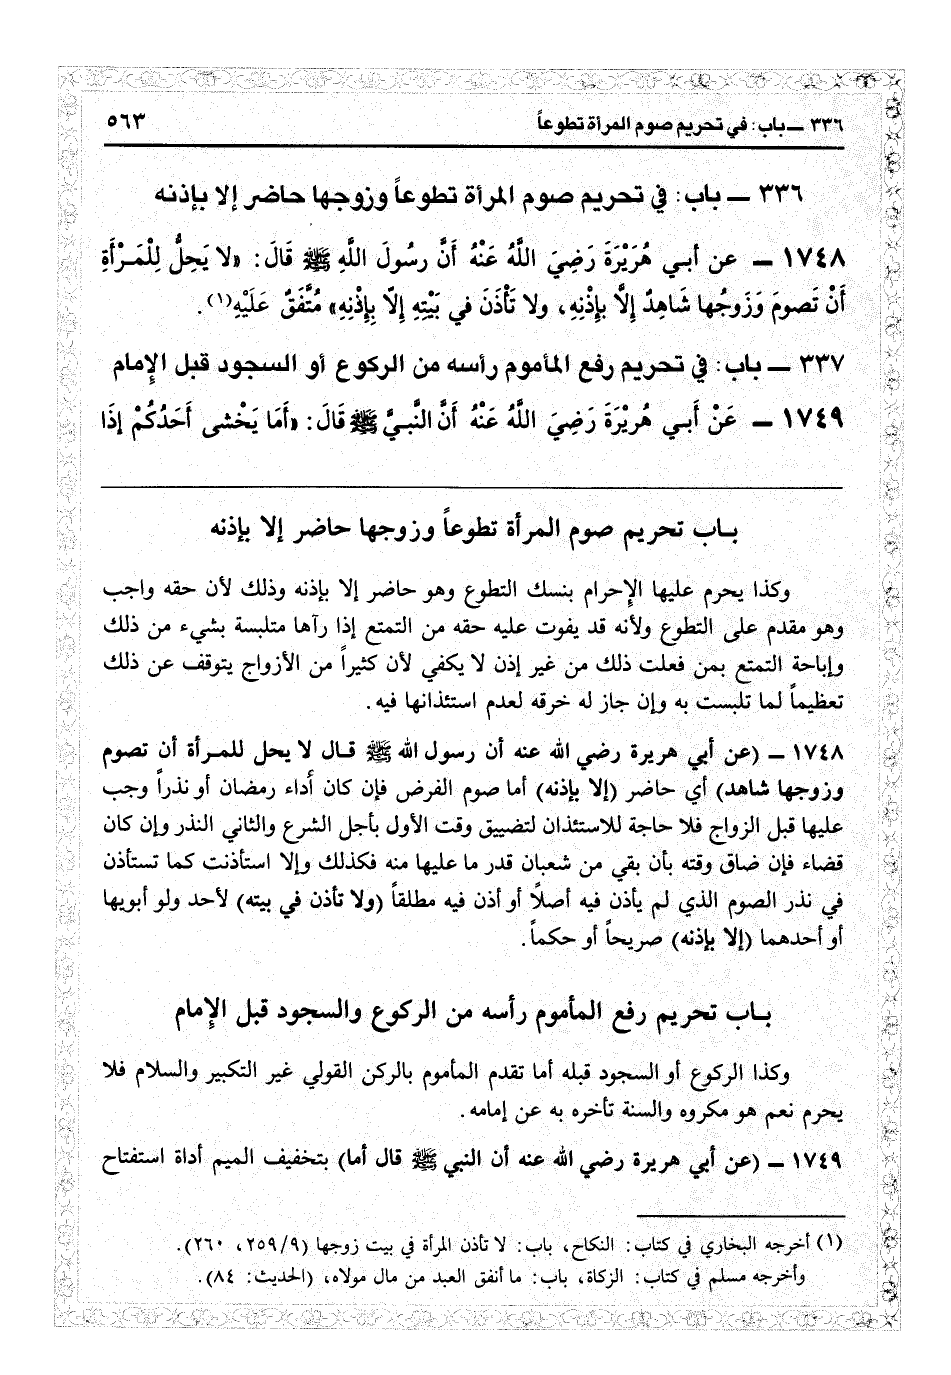 ٣٣٦ ـ باب: في تحريم صوم المرأة تطوعاً
٥٦٣
٣٣٦ ـ باب: في تحريم صوم المرأة تطوعاً وزوجها حاضر إلا بإذنه
١٧٤٨ ـ عن أبي هُرَيْرَةَ رَضِيَ اللَّهُ عَنْهُ أَنَّ رسُولَ اللَّهِ ﷺ قَالَ: «لا يَحِلُّ لِلْمَرْأَةِ
أَنْ تَصُومَ وَزَوجُها شَاهِدٌ إلَّا بإذْنِهِ، ولا تَأْذَنَ في بَيْتِهِ إلّا بِإذْنِهِ» مُتَّفَقٌ عَلَيْهِ(١).
٣٣٧ ـ باب: في تحريم رفع المأموم رأسه من الركوع أو السجود قبل الإمام
١٧٤٩ ـ عَنْ أَبي هُرَيْرَةَ رَضِيَ اللَّهُ عَنْهُ أَنَّ النَّبيَّ ﷺ قَالَ: «أَمَا يَخْشى أَحَدُكُمْ إذَا
بـاب تحريم صوم المرأة تطوعاً وزوجها حاضر إلا بإذنه
وكذا يحرم عليها الإحرام بنسك التطوع وهو حاضر إلا بإذنه وذلك لأن حقه واجب
وهو مقدم على التطوع ولأنه قد يفوت عليه حقه من التمتع إذا رآها متلبسة بشيء من ذلك
وإباحة التمتع بمن فعلت ذلك من غير إذن لا يكفي لأن كثيراً من الأزواج يتوقف عن ذلك
تعظيماً لما تلبست به وإن جاز له خرقه لعدم استئذانها فيه.
١٧٤٨ ـ (عن أبي هريرة رضي الله عنه أن رسول الله ﷺ قال لا يحل للمرأة أن تصوم
وزوجها شاهد) أي حاضر (إلا بإذنه) أما صوم الفرض فإن كان أداء رمضان أو نذراً وجب
عليها قبل الزواج فلا حاجة للاستئذان لتضييق وقت الأول بأجل الشرع والثاني النذر وإن كان
قضاء فإن ضاق وقته بأن بقي من شعبان قدر ما عليها منه فكذلك وإلا استأذنت كما تستأذن
في نذر الصوم الذي لم يأذن فيه أصلاً أو أذن فيه مطلقاً (ولا تأذن في بيته) لأحد ولو أبويها
أو أحدهما (إلا بإذنه) صريحاً أو حكماً.
بـاب تحريم رفع المأموم رأسه من الركوع والسجود قبل الإمام
وكذا الركوع أو السجود قبله أما تقدم المأموم بالركن القولي غير التكبير والسلام فلا
يحرم نعم هو مكروه والسنة تأخره به عن إمامه.
١٧٤٩ ـ (عن أبي هريرة رضي الله عنه أن النبي ﷺ قال أما) بتخفيف الميم أداة استفتاح
(١) أخرجه البخاري في كتاب: النكاح، باب: لا تأذن المرأة في بيت زوجها (٢٥٩/٩، ٢٦٠).
وأخرجه مسلم في كتاب: الزكاة، باب: ما أنفق العبد من مال مولاه، (الحديث: ٨٤).